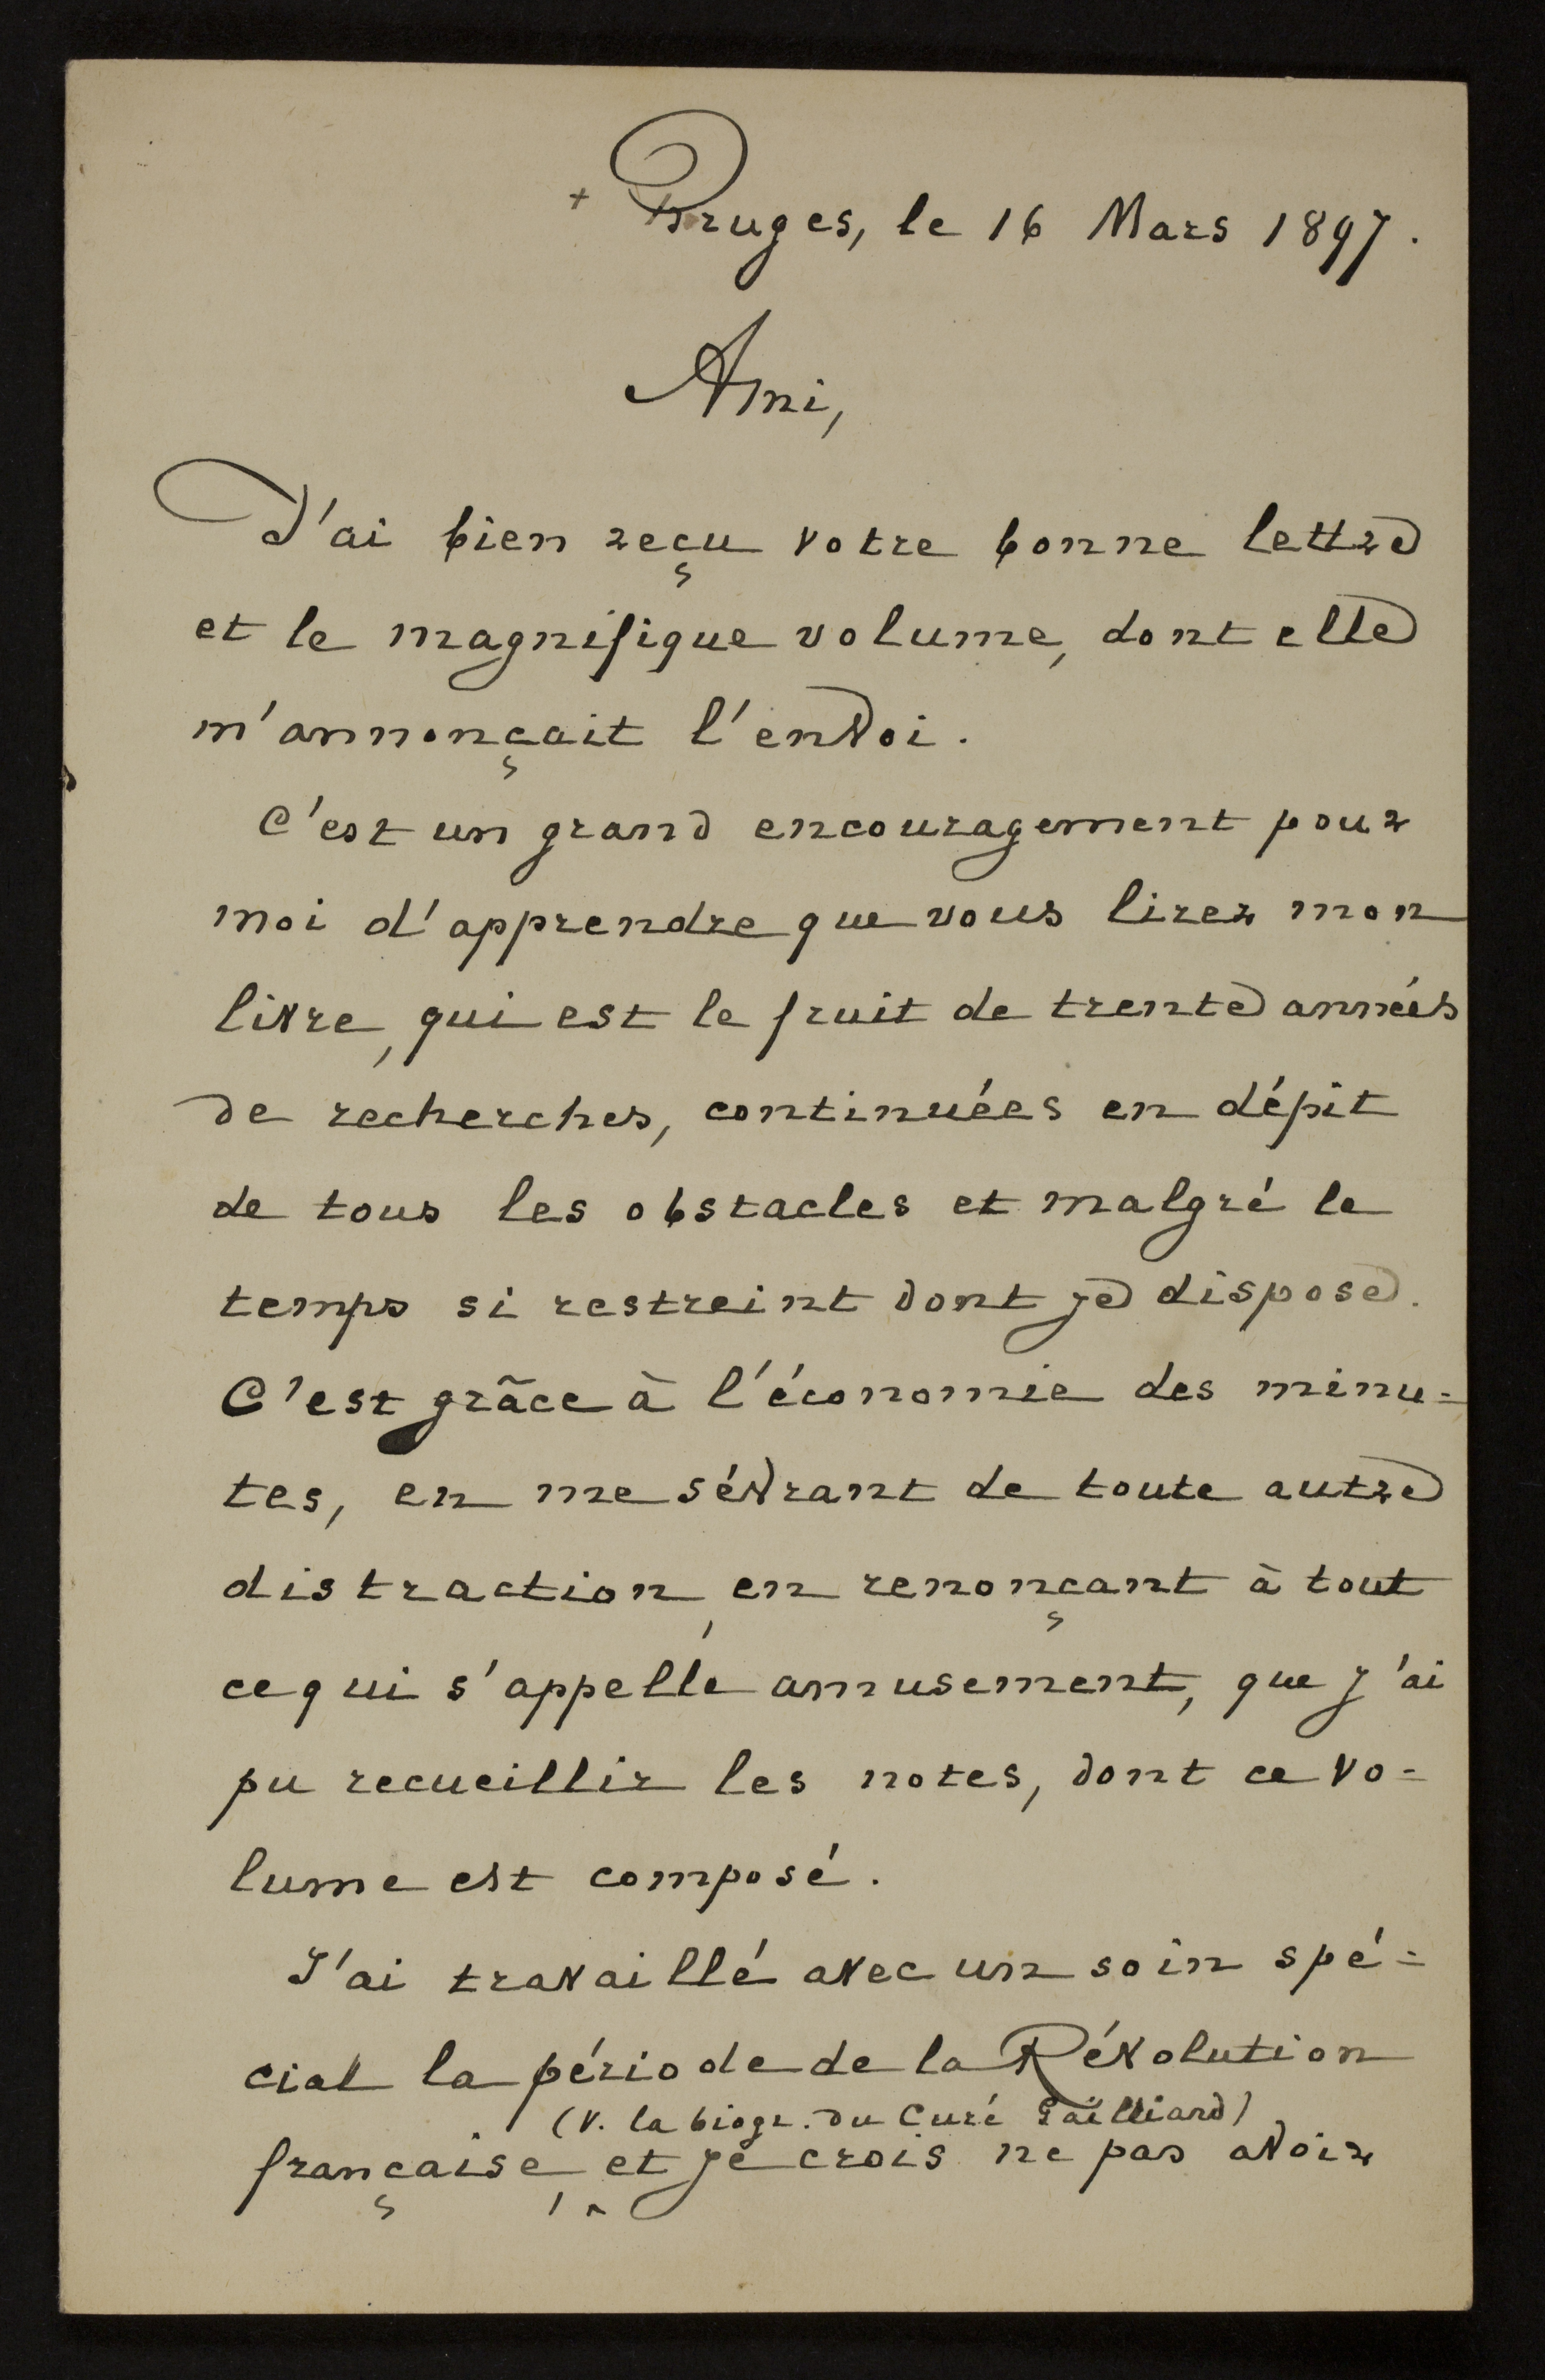 + Bruges, le 16 Mars 1897.
Ami,
J'ai bien reçu votre bonne lettre
et le magnifique volume, dont elle
m'annonçait l'envoi.
C'est un grand encouragement pour
moi d'apprendre que vous lirez mon
livre, qui est le fruit de trente années
de recherches, continuées en dépit
de tous les obstacles et malgré le
temps si restreint dont je dispose.
C'est grâce à l'économie des minu=
tes, en me sévrant de toute autre
distraction, en renonçant à tout
ce qui s'appelle amusement, que j'ai
pu recueillir les notes, dont ce vo=
lume est composé.
J'ai travaillé avec un soin spé=
cial la période de la Révolution
(V. la biogr. du Curé Gailliard)
française, et je crois ne pas avoir